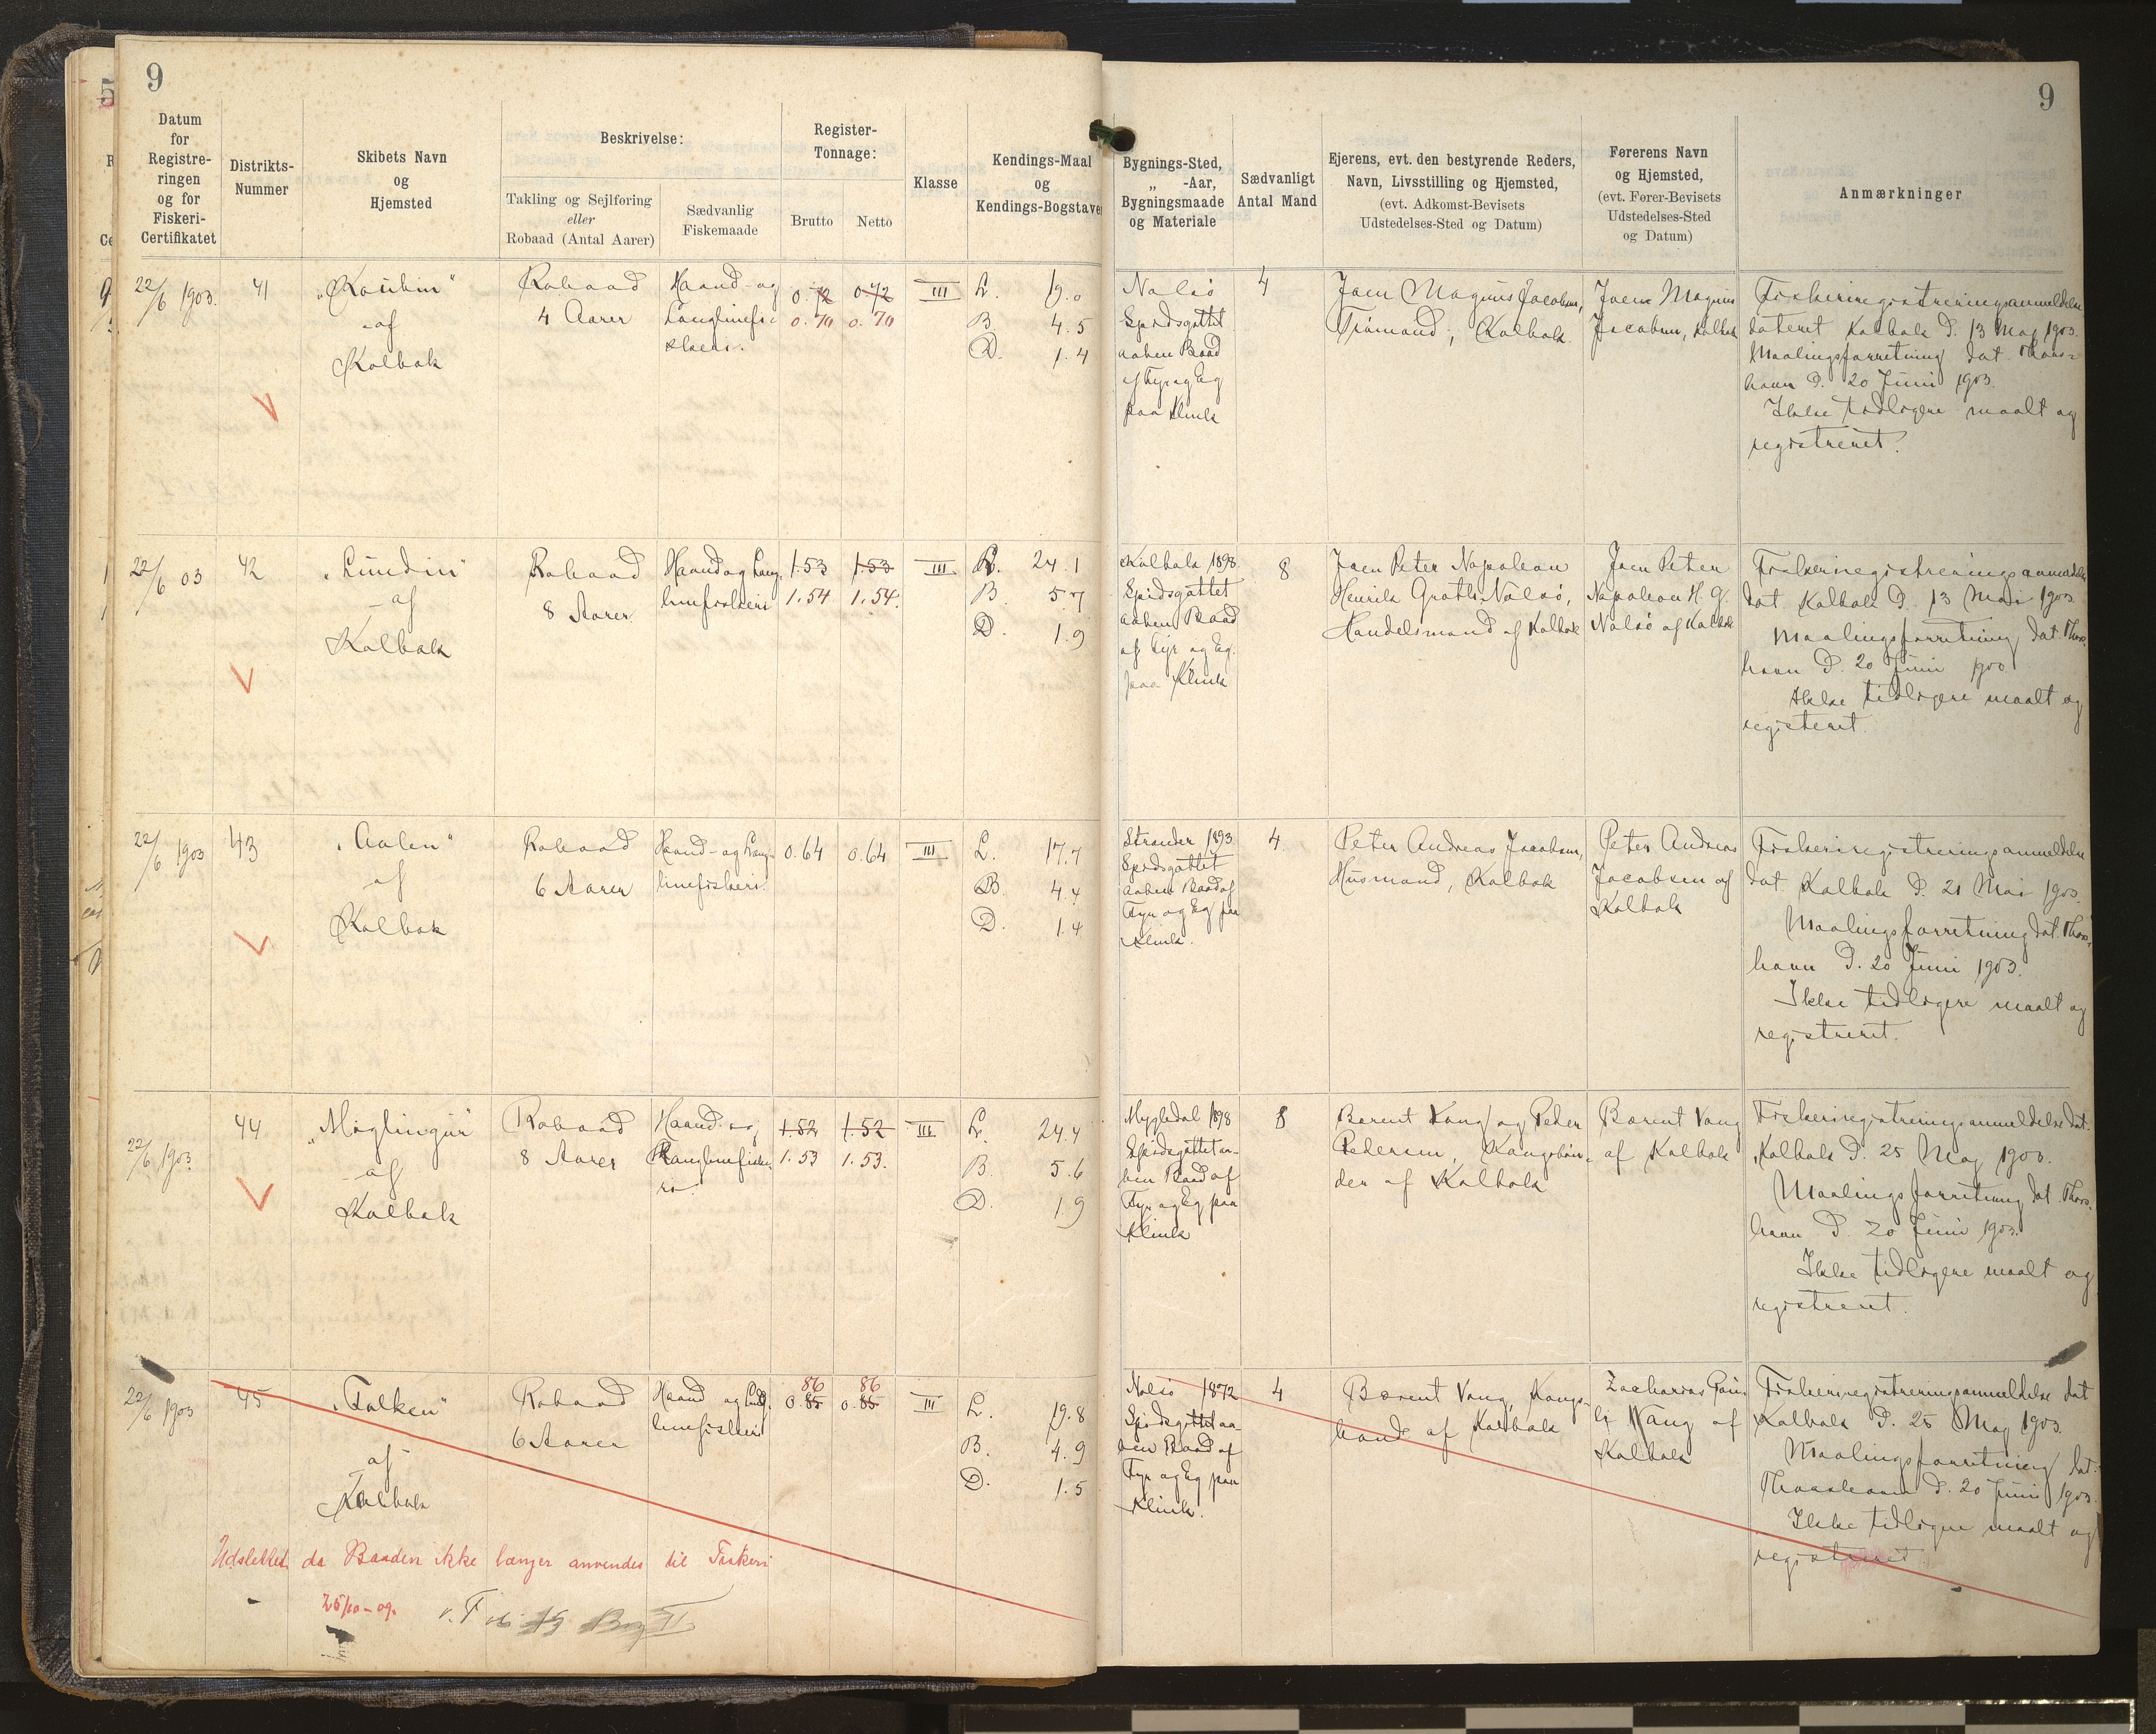 9
9
Datum
for
Registre-
ringen
og for
Fiskeri-
Certifikatet
Distrikts-
Nummer
Skibets Navn
og
Hjemsted
Beskrivelse:
Takling og Sejlføring
eller
Robaad (Antal Aarer)
Sædvanlig
Fiskemaade
Register-
Tonnage:
Brutto
Netto
Klasse
Kendings-Maal
og
Kendings-Bogstaver
Bygnings-Sted,
„ -Aar,
Bygningsmaade
og Materiale
Sædvanligt
Antal Mand
Ejerens, evt. den bestyrende Reders,
Navn, Livsstilling og Hjemsted,
(evt. Adkomst-Bevisets
Udstedelses-Sted og Datum)
Førerens Navn
og Hjemsted,
(evt. Fører-Bevisets
Udstedelses-Sted
og Datum)
Anmærkninger
22/6 1903.
41
af
Kalbak
Robaad
4 Aarer
Haand- og
Langlinefi-
skeri.
0.72 0.72
0.70 0.70
III
L. 19.0
B. 4.5
D. 1.4
Nolsö
Spidsgattet
aaben Baad
af Fyr og Eg
paa Klink
4
Joen Magnus Jacobsen,
Kalbak.
Joen Magnus
Jacobsen, Kalbak
Fiskeriregistreringsanmeldelse
dateret Kalbak d. 13 Maj 1903.
Maalingsforretning dat. Thors-
havn d. 20 Juni 1903.
Ikke tidligere maalt og
registreret.
22/6 03
42
„Lundin“
af
Kalbak
Robaad
8 Aarer
Haand og Lang-
linefiskeri
1.53 1.53
1.54 1.54.
III
L. 24.1
B. 5.7
D. 1.9
Kalbak 1898
Spidsgattet
aaben Baad
af Fyr og Eg.
paa Klink
8
Joen Peter Napoleon
Henrik Nolsö,
Handelsmand af Kalbak
Joen Peter
Napoleon H. G.
Nolsö af Kalbak
Fiskeriregistreringsanmeldelse
dat Kalbak d. 13 Mai 1903
Maalingsforretning dat. Thors-
havn d. 20 Juni 1903
Ikke tidligere maalt og
registeret.
22/6 1903
43
„Aalen“
af
Kalbak
Robaad
6 Aarer
Haand- og Lang-
linefiskeri.
0.64 0.64
III
L. 17.7
B. 4.4
D. 1.4
Strender 1893
Spidsgattet
aaben Baad af
Fyr og Eg paa
Klink.
4
Peter Andreas Jacobsen,
Husmand, Kalbak
Peter Andreas
Jacobsen af
Kalbak
Fiskeriregistreringsanmeldelse
dat. Kalbak d. 21 Mai 1903.
Maalingsforretning dat. Thors-
havn d. 20 Juni 1903.
Ikke tidligere maalt og
registreret.
22/6 1903
44
„Möglingur“
af
Kalbak
Robaad
8 Aarer
Haand- og
Langlinefiske-
ri.
1.52 1.52
1.53 1.53.
III
L. 24.4
B. 5.6
D. 1.9
Mygledal 1898
Spidsgattet aa-
ben Baad af
Fyr og Eg paa
Klink
8
Barent Vang og Peder
Pedersen, Kongsbøn-
der af Kalbak
Barent Vang
af Kalbak
Fiskeriregistreringsanmeldelse dat.
Kalbak d. 25 Maj 1903.
Maalingsforretning dat. Thors-
havn d. 20 Juni 1903.
Ikke tidligere maalt og
registreret.
22/6 1903
45
„Falken“
af
Kalbak
Robaad
6 Aarer
Haand og Lang-
linefiskeri
86 86
0.85 0.85
III
L. 19.8
B. 4.9
D. 1.5
Nolsö 1872
Spidsgattet aa-
ben Baad af
Fyr og Eg paa
Klink.
4
Barent Vang, Kongs-
bonde af Kalbak
Zacharias
Vang af
Kalbak
Fiskeriregistreringsanmeldelse dat
Kalbak d. 25 Maj 1903.
Maalingsforretning dat.
Thorshavn d. 20 Juni 1903.
Ikke tidligere maalt og
registreret
Udslettet, da Baaden ikke længer anvendes til Fiskeri
25/10-09.